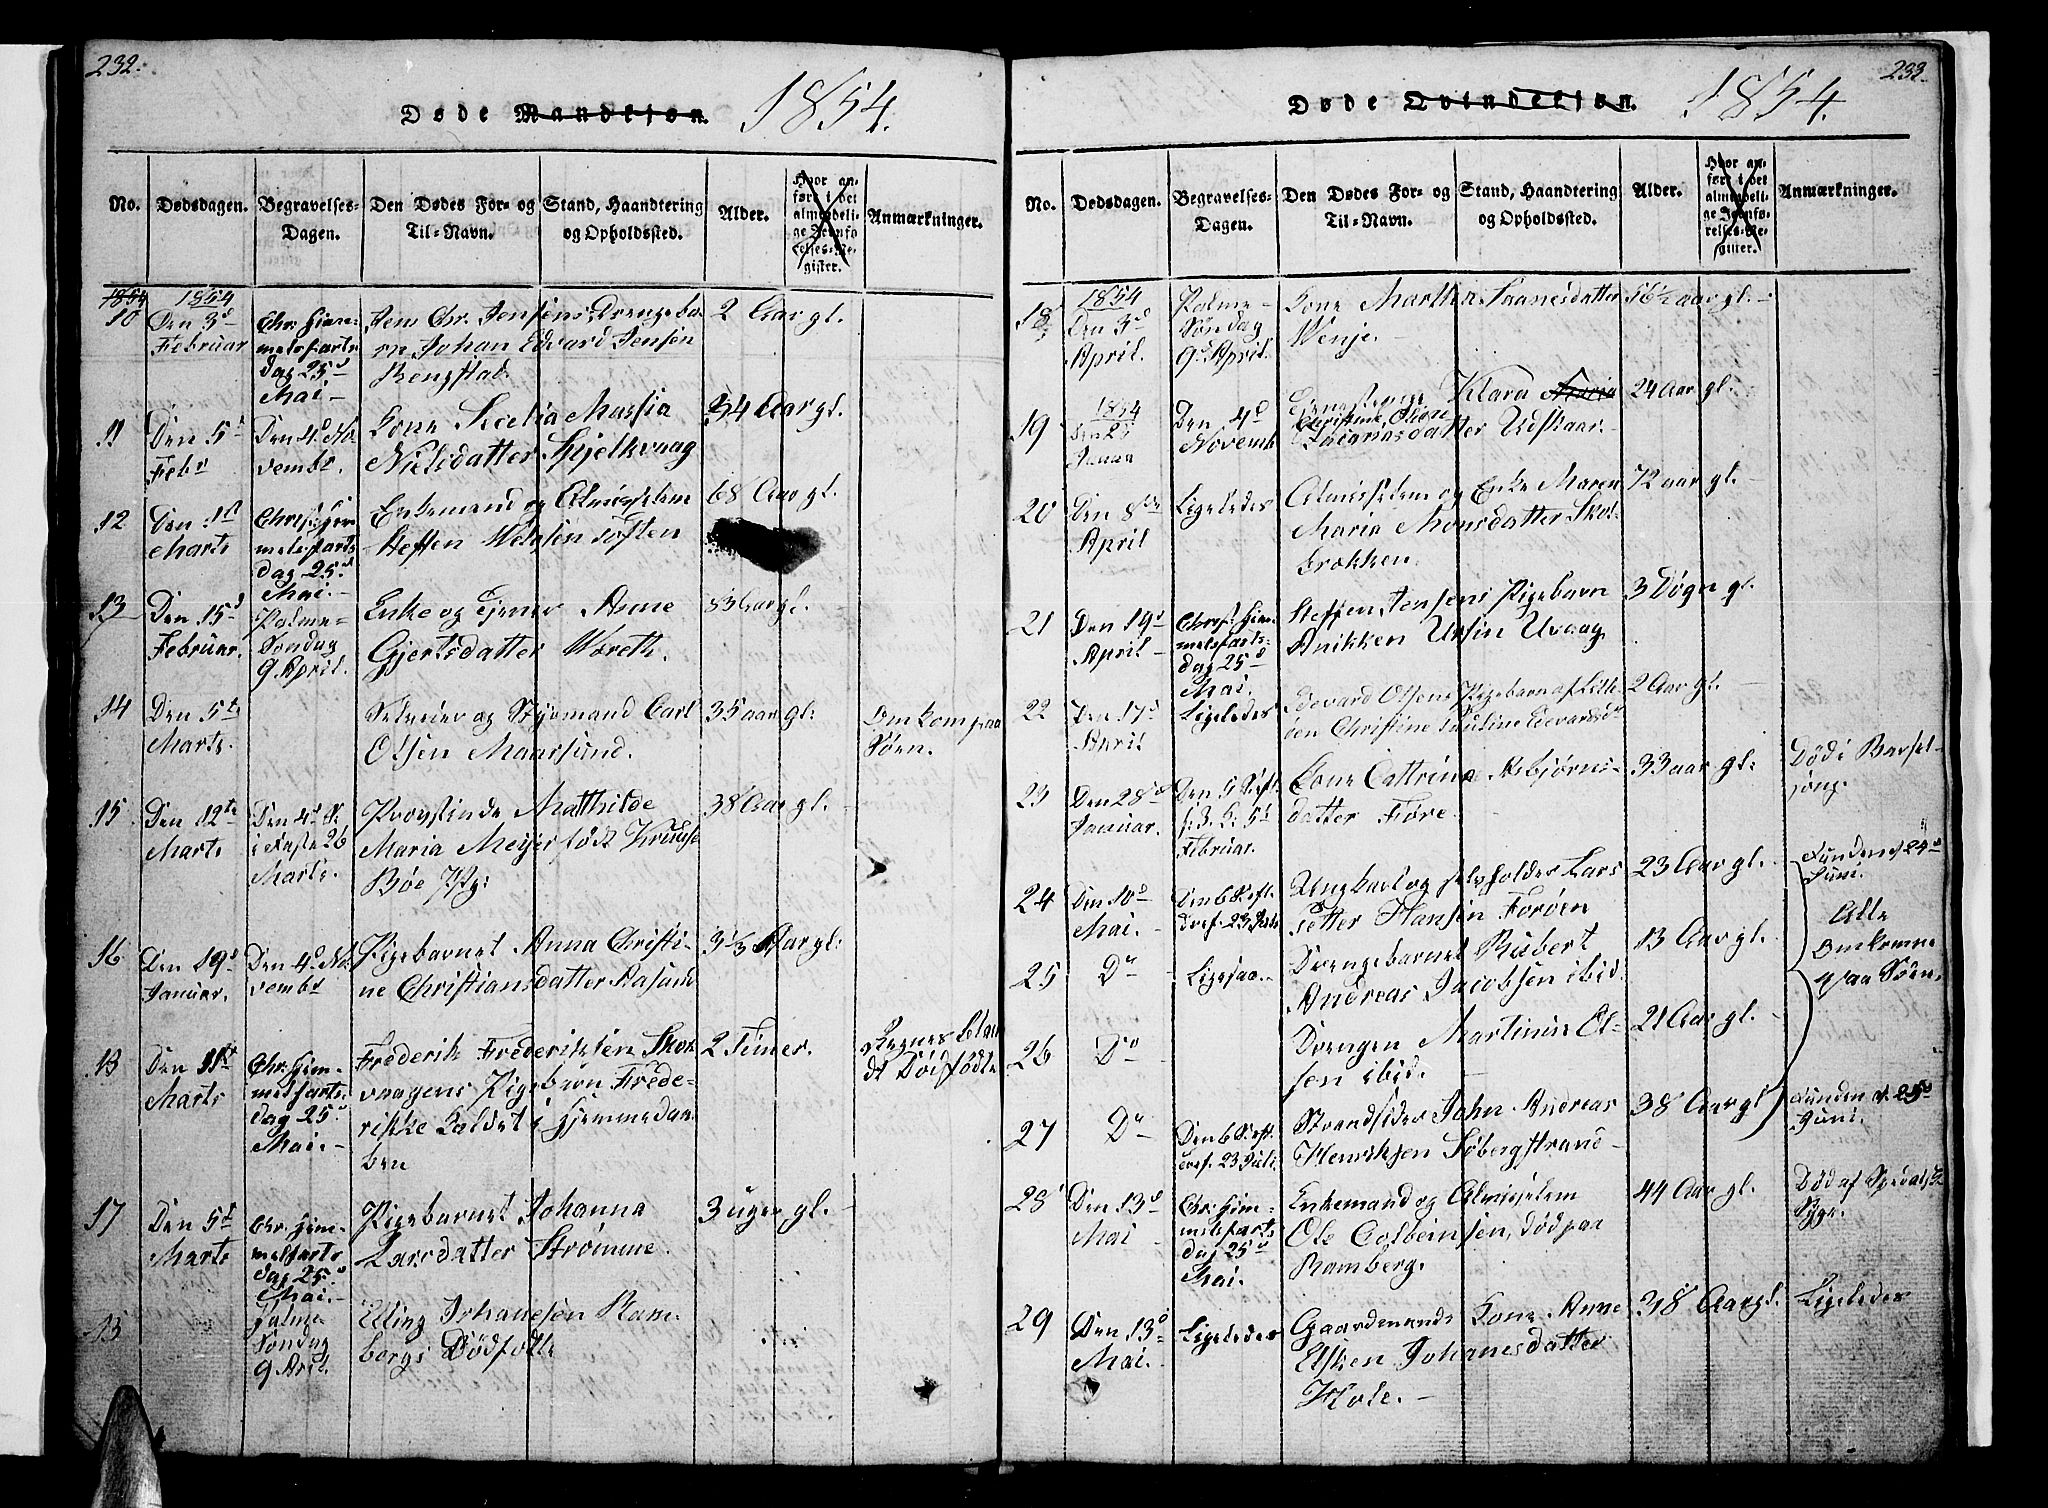 232.
Døde Mandkjøn. 1854.
No. Dødsdagen. Begravelses-Dagen. Den Dødes For- og Til-Navn. Stand, Haandtering og Opholdssted. Alder. Hvor anført i det almindelige Jevnførelses-Register. Anmærkninger.
1854 1854
10 Den 3d Februar
Chr. Himmelsfarts dag 25d Mai
Jens Chr. Jensens Drengebarn Johan Edvard Jensen Ringstad
2 Aar gl.
11 Den 5d Febr
Den 4d November.
Kone Secelia Massia Nielsdatter Skjelkvaag
34 Aar gl.
12 Den 1st Marts
Christihimmelsfarts dag 25d Mai.
Enkemand og Almisselem Steffen Nielsen Toften
68 Aar gl.
13 Den 15d Februar.
Palme-Søndag 9 April.
Enke og Anne Gjertsdatter Woreth.
83 Aar gl.
14 Den 5te Marts.
Seleier og Styrmand Carl Olsen Maarsund.
35 aar gl:
Omkom paa Søen.
15 Den 12te Marts
Den 4d S. i Faste 26 Marts.
Provstinde Matthilde Maria Meijer født Kruuse Bøe Pg:
38 Aar gl.
16 Den 19d Januar.
Den 4d November
Pigebarnet Anna Christine Christiansdatter Rasund
3 1/3 Aar gl:
13 Den 11te Marts
Chr: Himmelfarts dag 25d Mai.
Frederik Frederiksen Skogvaagens Pigebarn Frederikke Kaldet i Hjemmedaaben
2 Timer.
Regnes blandt Dødfødte
17 Den 5d Marts
Chr. Himmelfarts dag 25d Mai.
Pigebarnet Johanna Larsdatter Strømme.
3 uger gl.
13
Palme Søndag 9 April
Elling Johanesen Rambergs Dødfødte

233.
Døde Qvindekjøn. 1854.
No. Dødsdagen. Begravelses-Dagen. Den Dødes For- og Til-Navn. Stand, Haandtering og Opholdssted. Alder. Hvor anført i det almindelige Jevnførelses-Register. Anmærkninger.
18 1854 Den 3d April.
Palme-Søndag 9d April.
Kone Marthe Hanesdatter Wenje.
56 1/2 aar gl.
19 1854 Januar
Den 4d Novemb
Klara Maria Christine Zacariasdatter Udskaar.
24 Aar gl.
20 Den 8de April
Ligeledes
Almisselem og Enke Maren Maria Monsdatter Skolbrokken.
72 aar gl.
21 Den 19d April
Christ. Himmelsfarts dag 25d Mai.
Steffen Jensens Pigebarn Anikken Ursin Uvaag
3 Døgn gl.
22 Den 17d April
Ligeledes
Edevard Olsens Pigebarn af Litleøen Christine Pauline Edevardsdr
2 Aar gl.
23 Den 28d Januar.
Den 5 Sefts. H. 3. K. 5d Februar.
Kone Cattrina Asbjørnsdatter Føre.
33 aar gl:
Død i Barselsøng.
24 Den 10d Mai.
Den 6 S. eft. Tref. 23 Juli
Ungkarl og selvholder Lars Petter Hansen Forøen
23 Aar gl.
Funden d 24d Juni.
25 Do
Ligesaa.
Drengebarnet Rubert Andreas Jacobsen ibid.
13 Aar gl.
Alle Omkomne paa Søen.
26 Do
Drengen Martinus Olsen ibid.
21 Aar gl.
27 Do
Den 6 S. eft. Tref. 23 Juli
Strandsider John Andreas Henriksen Søbergstrand
38 Aar gl.
Funden d. 25d Juni.
28 Den 13d Mai
Chr. Himmelsfarts dag 25d Mai.
Enkemand og Almisselem Ole Colbeinsen, død paa Ramberg.
44 Aar gl.
Død af Spedalsk Syge.
29 Den 13d Mai.
Ligeledes
Gaardmands Kone Anne Elsken Johanesdatter Hole.
38 Aar gl.
Ligeledes